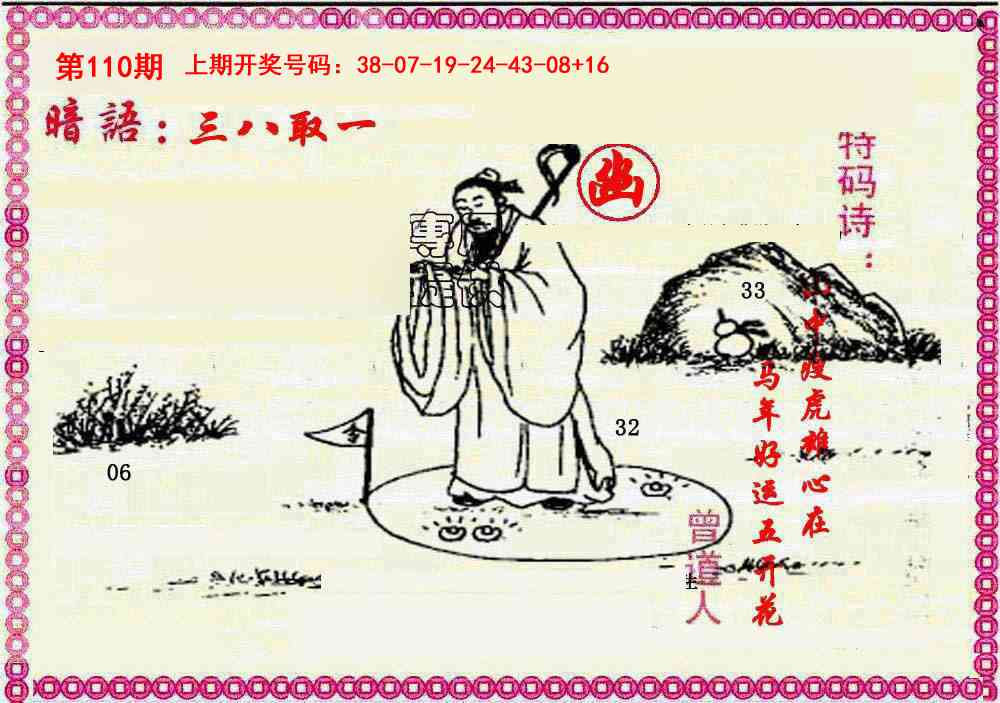 第110期 上期开奖号码：38-07-19-24-43-08+16
暗語：三八取一
幽
特码诗：
山中瘦虎雄心在
马年好运五开花
33
32
06
令
曾道人